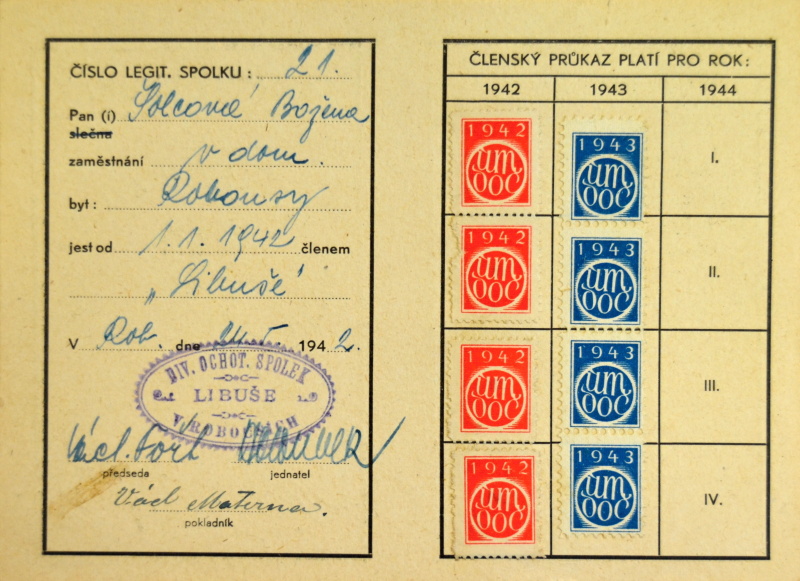 ČÍSLO LEGIT. SPOLKU: 21.
Pan (í) Šolcová Božena
slečna
zaměstnání v dom.
byt: Robousy
jest od 1. 1. 1942 členem
„Libuše“
V Rob. dne 1942.
DIV. OCHOT. SPOLEK
LIBUŠE
V ROBOUSECH
Václ. Šorf
předseda jednatel
Václ Materna.
pokladník
ČLENSKÝ PRŮKAZ PLATÍ PRO ROK:
1942 1943 1944
1942 um ooc 1943 um ooc I.
1942 um ooc 1943 um ooc II.
1942 um ooc 1943 um ooc III.
1942 um ooc 1943 um ooc IV.